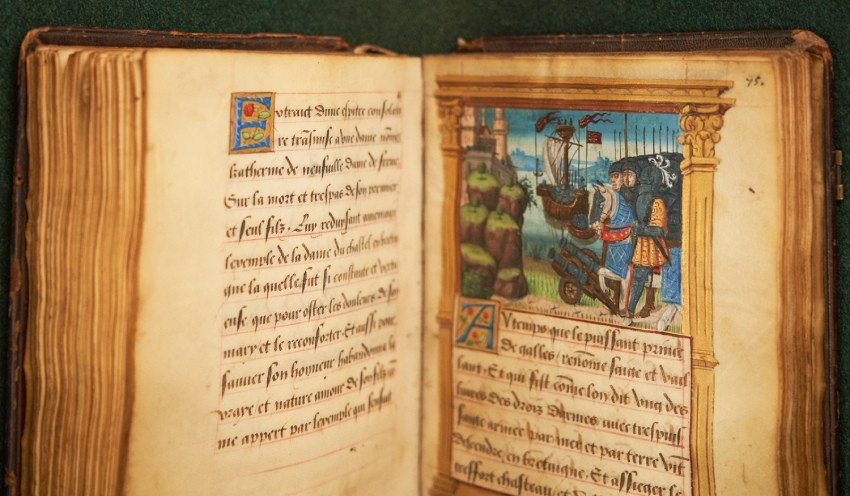 Extraict dune epitre consolatoi
re trãsmise a une dame nõmee
katherme de neufuille dame de frene
Sur la mort et trespas de son premier
et seul filz. Luy reduysant amemoire
lexemple de la dame du chastel en bretai
gne la quelle fut si constante et vertu
euse que pour oster les douleurs de son
mary et le reconforter. Et aussi pour
sauuer son honneur habandonna la
vraye et nature amour de son filz
me appert par lexemple qui sensuit
75.
Au temps que le puissant prince
de galles, renõme saige et vail
lant. Et qui fist cõme lon dit ung des
liures des droiz darmes auec trespuis
sante armee par mer et par terre vĩt
descendre en bretaigne. Et assieger le
tresfort chasteau